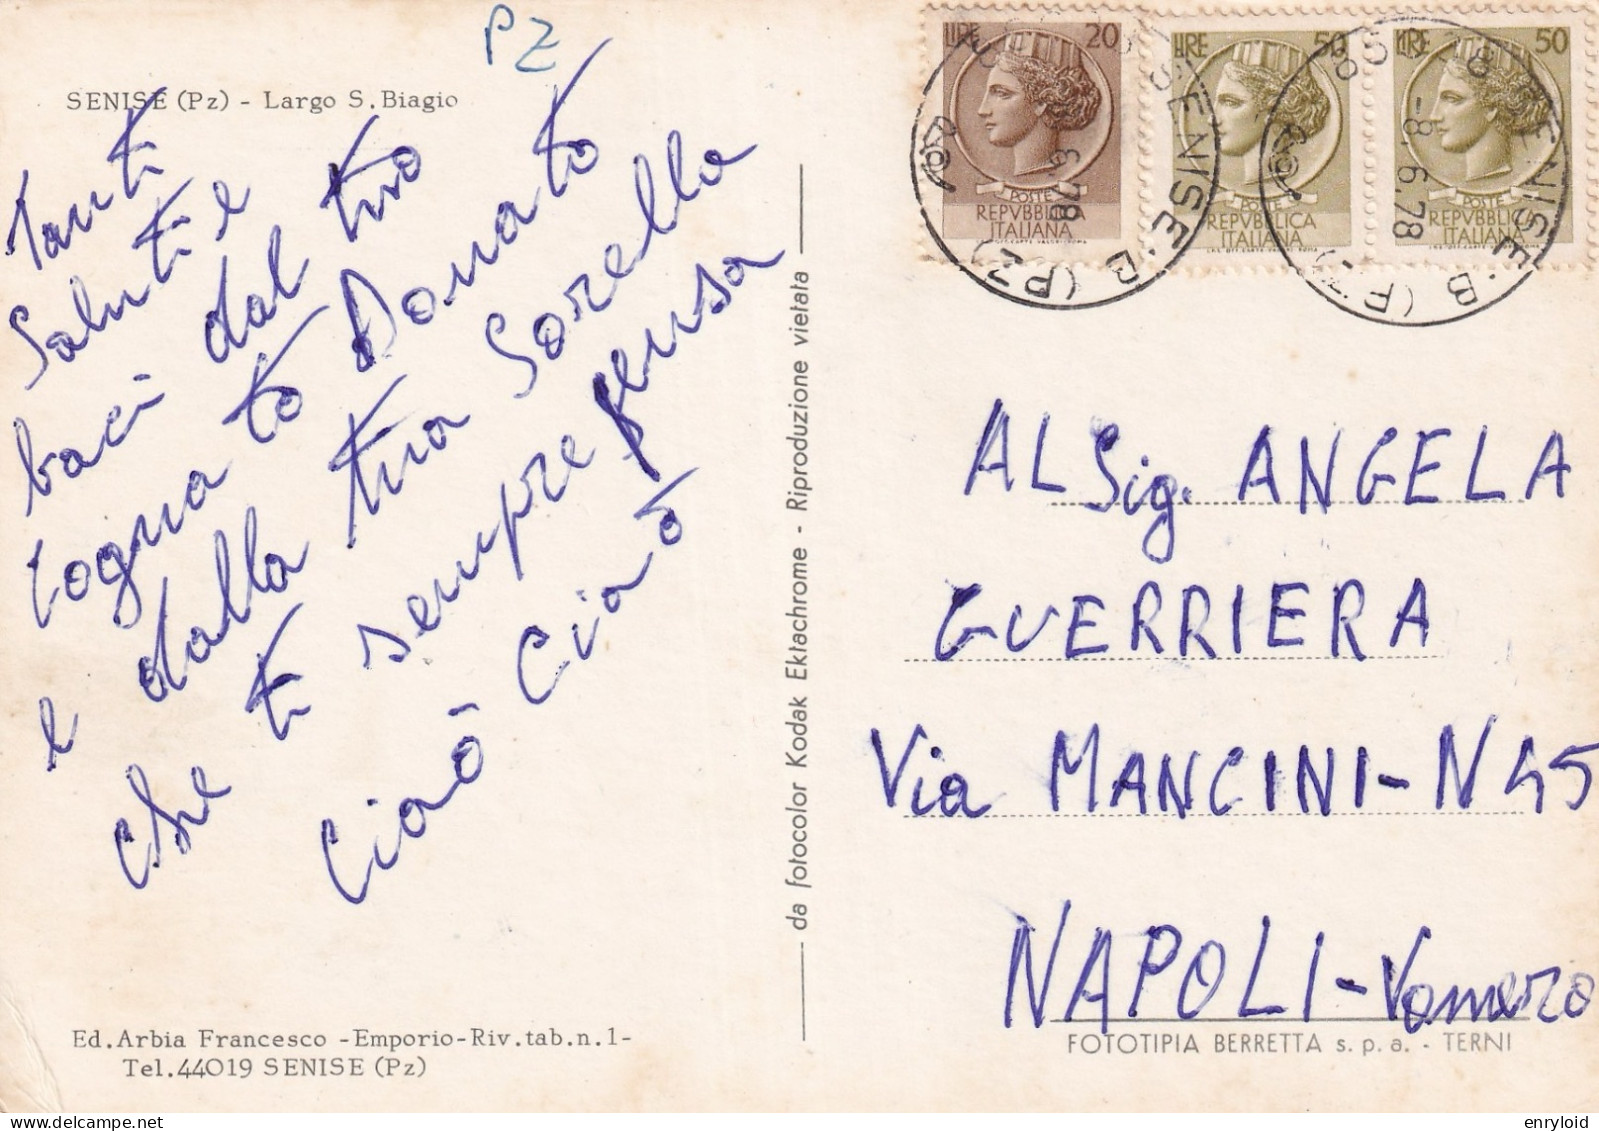 PZ
SENISE (Pz) - Largo S. Biagio
Tanti
Saluti e
baci dal tuo
Cognato Donato
e dalla tua Sorella
che ti sempre pensa
Ciaō Ciaō
Ed. Arbia Francesco -Emporio-Riv.tab.n.1-
Tel.44019 SENISE (Pz)
da fotocolor Kodak Ektachrome - Riproduzione vietata
LIRE 20
POSTE
REPVBBLICA
ITALIANA
LIRE 50
POSTE
REPVBBLICA
ITALIANA
LIRE 50
POSTE
REPVBBLICA
ITALIANA
SENISE · B (PZ)
6.78
SENISE · B (PZ)
-8.6.78
AL Sig. ANGELA
GUERRIERA
Via MANCINI-N 45
NAPOLI-Vomero
FOTOTIPIA BERRETTA s.p.a. - TERNI
enryloid